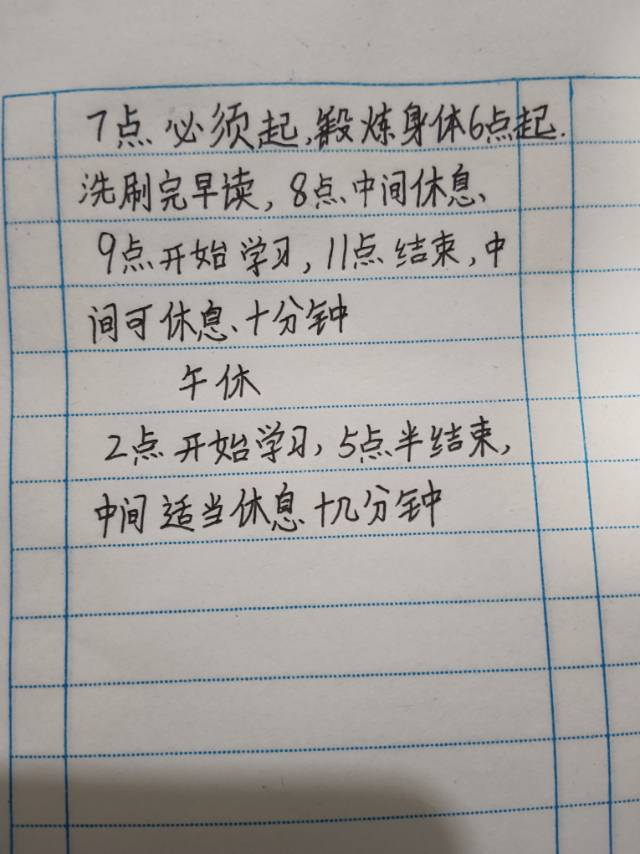 7点必须起,锻炼身体6点起.
洗刷完早读,8点中间休息、
9点开始学习,11点结束,中
间可休息、十分钟
午休
2点开始学习,5点半结束,
中间适当休息十几分钟